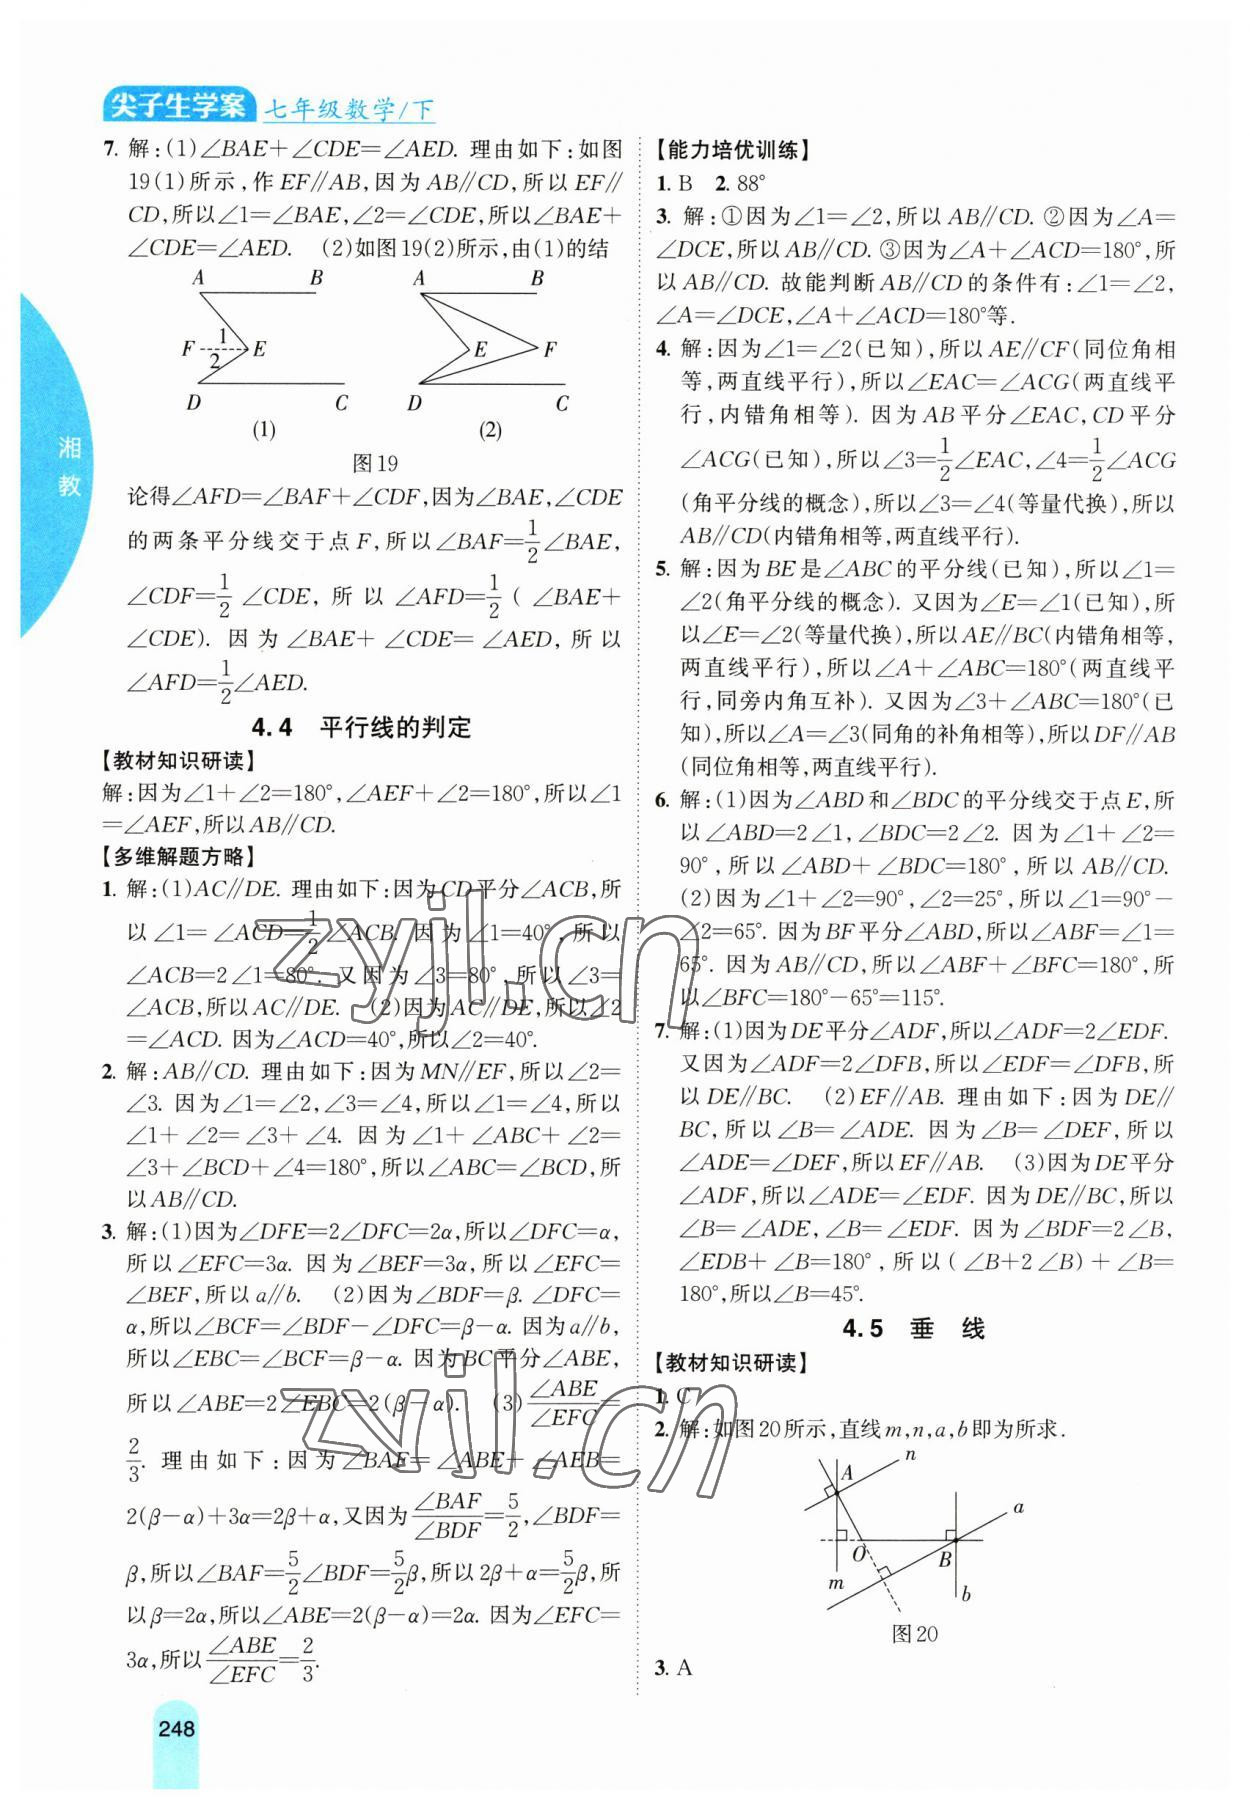 尖子生学案 七年级数学/下
7. 解:(1)∠BAE+∠CDE=∠AED. 理由如下:如图
19(1)所示,作EF∥AB,因为AB∥CD,所以EF∥
CD,所以∠1=∠BAE,∠2=∠CDE,所以∠BAE+
∠CDE=∠AED. (2)如图19(2)所示,由(1)的结
A B A B
F 1 2 E E F
D C D C
(1) (2)
图19
论得∠AFD=∠BAF+∠CDF,因为∠BAE,∠CDE
的两条平分线交于点F,所以∠BAF=1/2∠BAE,
∠CDF=1/2∠CDE,所以∠AFD=1/2(∠BAE+
∠CDE). 因为∠BAE+∠CDE=∠AED,所以
∠AFD=1/2∠AED.
4.4 平行线的判定
【教材知识研读】
解:因为∠1+∠2=180°,∠AEF+∠2=180°,所以∠1
=∠AEF,所以AB∥CD.
【多维解题方略】
1. 解:(1)AC∥DE. 理由如下:因为CD平分∠ACB,所
以∠1=∠ACD=1/2∠ACB. 因为∠1=40°,所以
∠ACB=2∠1=80°. 又因为∠3=80°,所以∠3=
∠ACB,所以AC∥DE. (2)因为AC∥DE,所以∠2
=∠ACD. 因为∠ACD=40°,所以∠2=40°.
2. 解:AB∥CD. 理由如下:因为MN∥EF,所以∠2=
∠3. 因为∠1=∠2,∠3=∠4,所以∠1=∠4,所以
∠1+∠2=∠3+∠4. 因为∠1+∠ABC+∠2=
∠3+∠BCD+∠4=180°,所以∠ABC=∠BCD,所
以AB∥CD.
3. 解:(1)因为∠DFE=2∠DFC=2α,所以∠DFC=α,
所以∠EFC=3α. 因为∠BEF=3α,所以∠EFC=
∠BEF,所以a∥b. (2)因为∠BDF=β. ∠DFC=
α,所以∠BCF=∠BDF-∠DFC=β-α. 因为a∥b,
所以∠EBC=∠BCF=β-α. 因为BC平分∠ABE,
所以∠ABE=2∠EBC=2(β-α). (3)∠ABE/∠EFC=
2/3. 理由如下:因为∠BAF=∠ABE+∠AEB=
2(β-α)+3α=2β+α,又因为∠BAF/∠BDF=5/2,∠BDF=
β,所以∠BAF=5/2∠BDF=5/2β,所以2β+α=5/2β,所
以β=2α,所以∠ABE=2(β-α)=2α. 因为∠EFC=
3α,所以∠ABE/∠EFC=2/3.
湘教
248
【能力培优训练】
1. B 2. 88°
3. 解:①因为∠1=∠2,所以AB∥CD. ②因为∠A=
∠DCE,所以AB∥CD. ③因为∠A+∠ACD=180°,所
以AB∥CD. 故能判断AB∥CD的条件有:∠1=∠2,
∠A=∠DCE,∠A+∠ACD=180°等.
4. 解:因为∠1=∠2(已知),所以AE∥CF(同位角相
等,两直线平行),所以∠EAC=∠ACG(两直线平
行,内错角相等). 因为AB平分∠EAC,CD平分
∠ACG(已知),所以∠3=1/2∠EAC,∠4=1/2∠ACG
(角平分线的概念),所以∠3=∠4(等量代换),所以
AB∥CD(内错角相等,两直线平行).
5. 解:因为BE是∠ABC的平分线(已知),所以∠1=
∠2(角平分线的概念). 又因为∠E=∠1(已知),所
以∠E=∠2(等量代换),所以AE∥BC(内错角相等,
两直线平行),所以∠A+∠ABC=180°(两直线平
行,同旁内角互补). 又因为∠3+∠ABC=180°(已
知),所以∠A=∠3(同角的补角相等),所以DF∥AB
(同位角相等,两直线平行).
6. 解:(1)因为∠ABD和∠BDC的平分线交于点E,所
以∠ABD=2∠1,∠BDC=2∠2. 因为∠1+∠2=
90°,所以∠ABD+∠BDC=180°,所以AB∥CD.
(2)因为∠1+∠2=90°,∠2=25°,所以∠1=90°-
∠2=65°. 因为BF平分∠ABD,所以∠ABF=∠1=
65°. 因为AB∥CD,所以∠ABF+∠BFC=180°,所
以∠BFC=180°-65°=115°.
7. 解:(1)因为DE平分∠ADF,所以∠ADF=2∠EDF.
又因为∠ADF=2∠DFB,所以∠EDF=∠DFB,所
以DE∥BC. (2)EF∥AB. 理由如下:因为DE∥
BC,所以∠B=∠ADE. 因为∠B=∠DEF,所以
∠ADE=∠DEF,所以EF∥AB. (3)因为DE平分
∠ADF,所以∠ADE=∠EDF. 因为DE∥BC,所以
∠B=∠ADE,∠B=∠EDF. 因为∠BDF=2∠B,
∠EDB+∠B=180°,所以(∠B+2∠B)+∠B=
180°,所以∠B=45°.
4.5 垂线
【教材知识研读】
1. C
2. 解:如图20所示,直线m,n,a,b即为所求.
A n a
O B
m b
图20
3. A
zyjl.cn
zyjl.cn